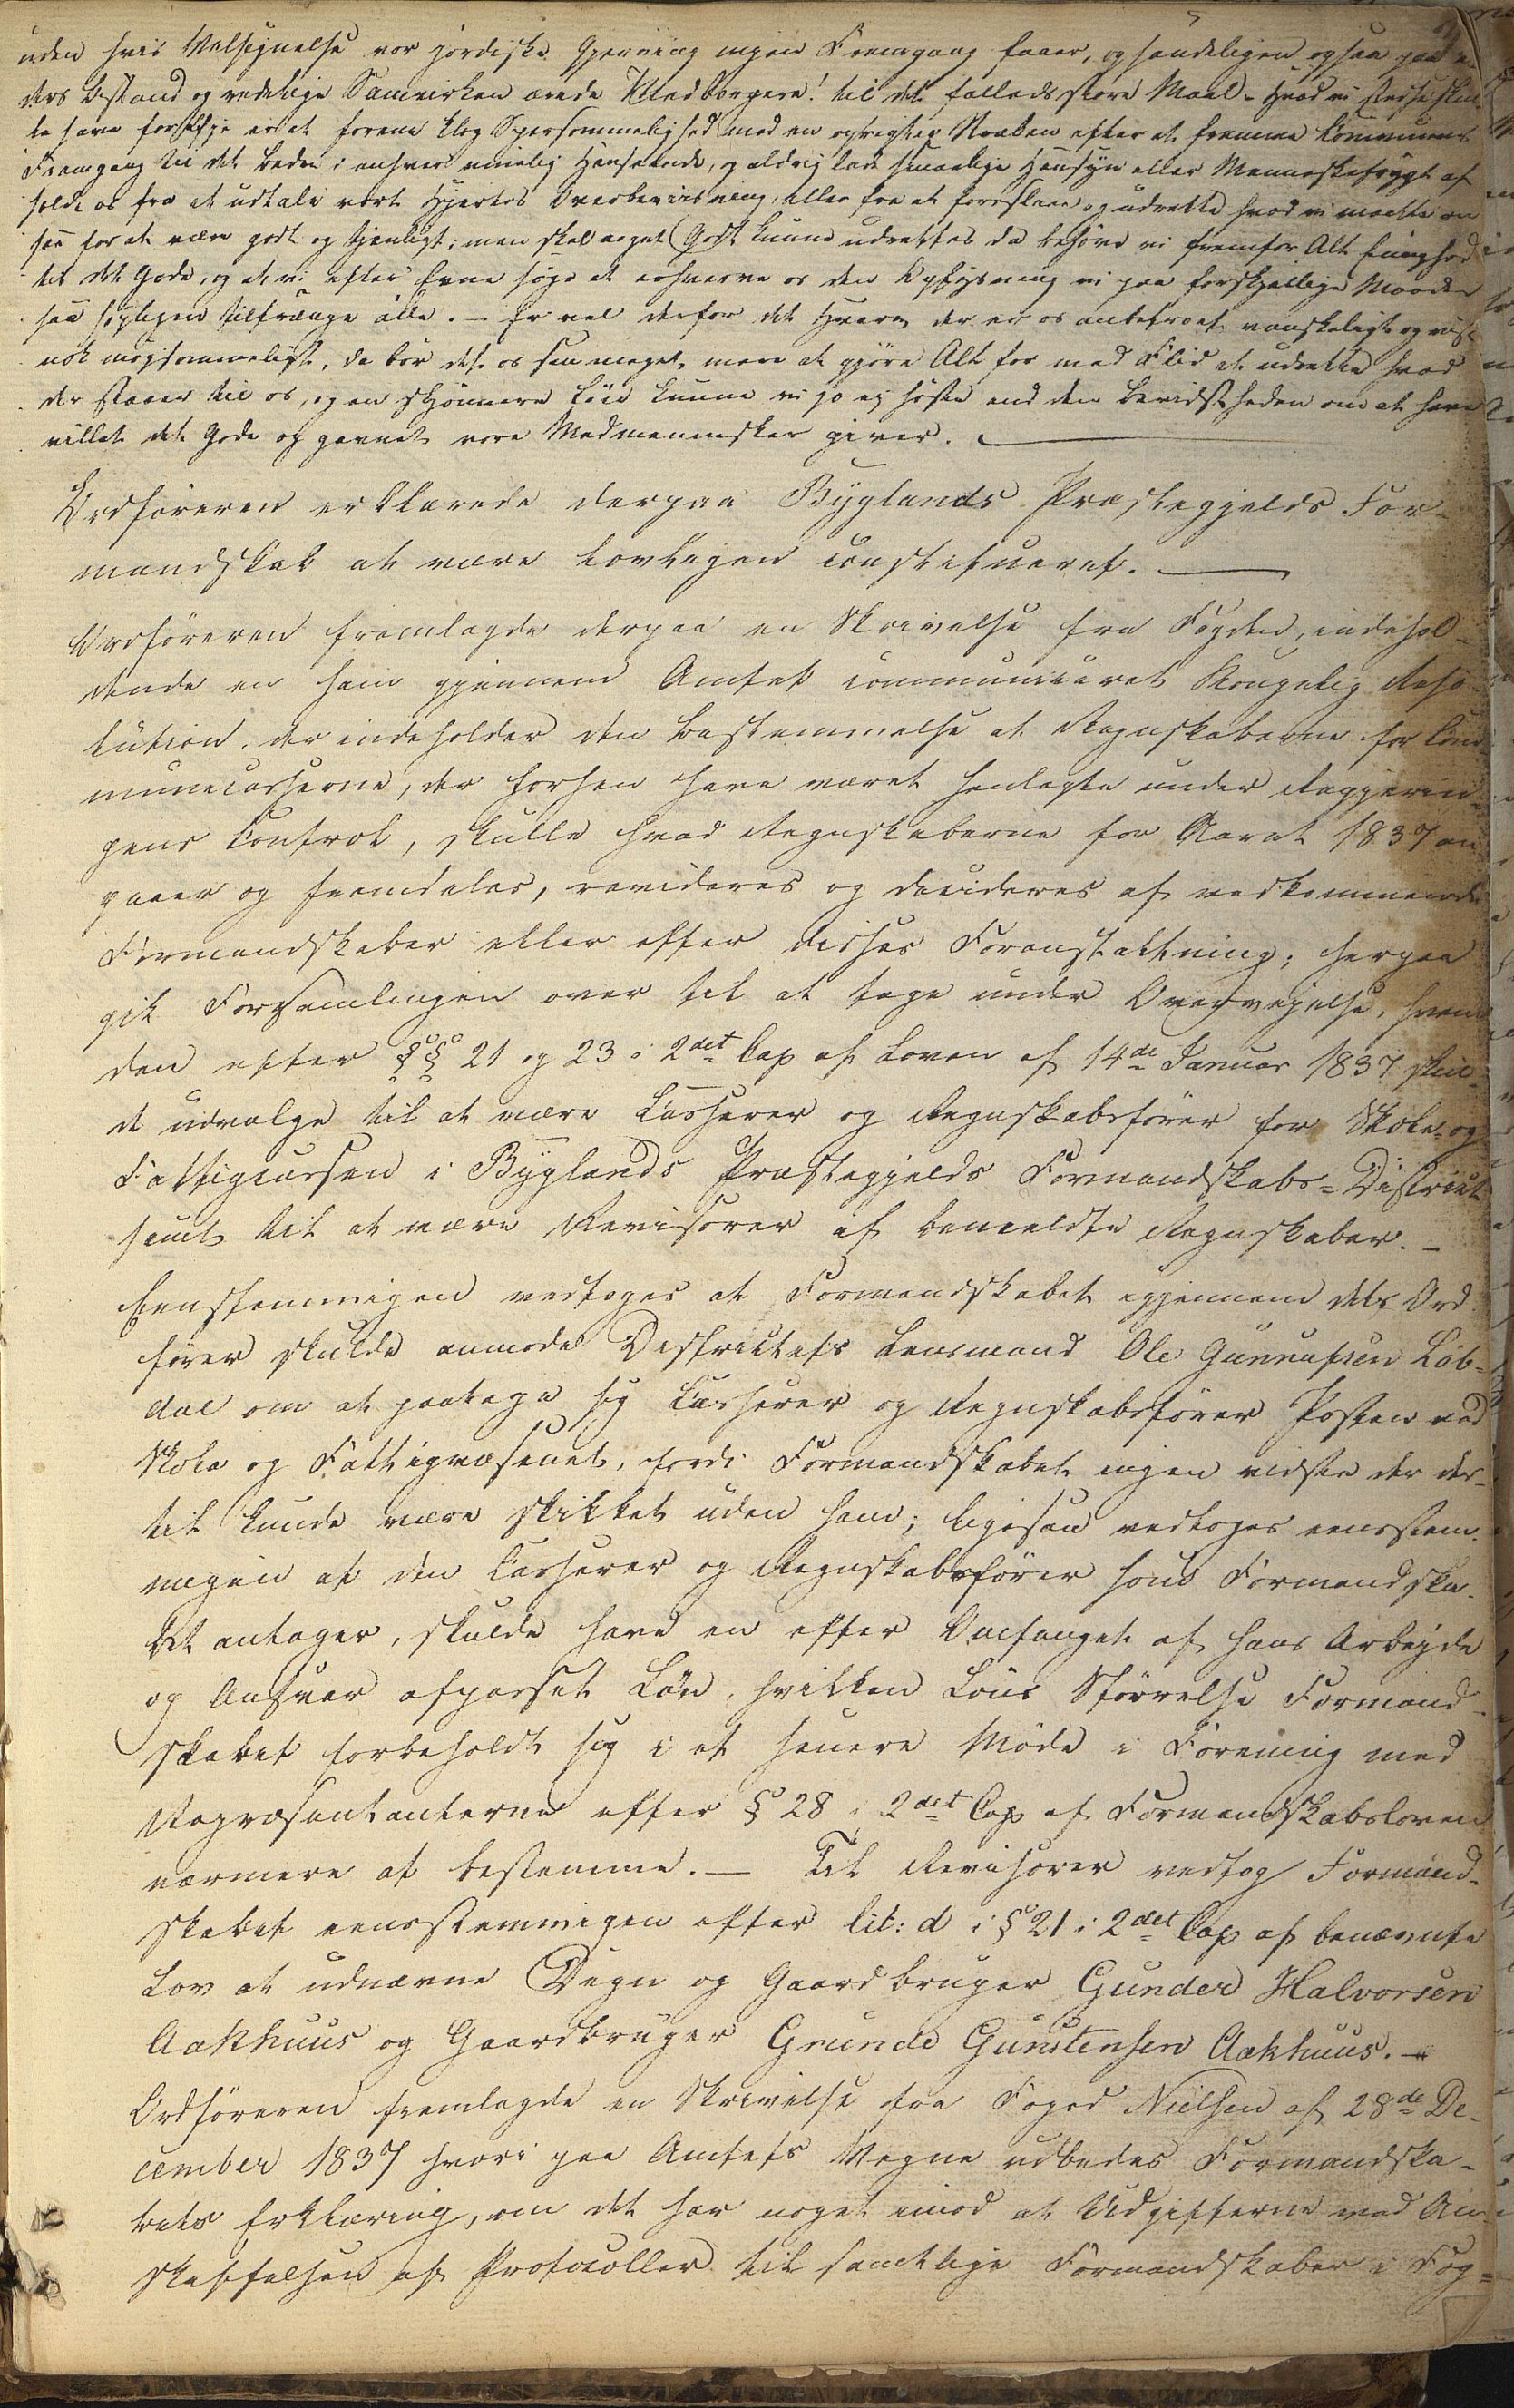 uden hvis Velsignelse vor jordiske Gjerning ingen Fremgang faaer, og haabeligen ogsaa paa
ders Bistand og redelige Samvirken ærede Medborgere! til det fælleds store Maal. Hvad vi stedse skul-
le have for Øje er at forene klog Sparsommelighed med en oprigtig Stræben efter at fremme Communens
Fremgang til det bedre i enhver muelig Henseende, og aldrig lade smaalige Hensyn eller Menneskefrygt af-
holde os fra at udtale vort Hjertes Overbeviisning, eller fra at foreslaae og udrette hvad vi maatte an-
see for at være godt og tjenligt; men skal noget Godt kunne udrettes da behøve vi fremfor Alt Enighed
til det Gode, og at vi efter Evne søge at erhverve os den Oplysning vi paa forskjellige Maader
saa høiligen tiltrænge alle. – Er vel derfor det Hverv der er os anbetroet vanskeligt og vist-
nok møisommeligt, da bør det os saa meget mere at gjøre Alt for med Flid at udrette hvad
der staaer til os, og en skjønnere Løn kunne vi jo ej høste end den Bevidstheden om at have
villet det Gode og gavnet vore Medmennesker giver. —
Ordføreren erklærede derpaa Byglands Præstegjelds For-
mandskab at være lovligen constitueret. —
Ordføreren fremlagde derpaa en Skrivelse fra Fogden, indehol-
dende en ham gjennem Amtet communiceret Kongelig Reso-
lution, der indeholder den Bestemmelse at Regnskaberne for Com-
municasserne, der forhen have været henlagte under Regjerin-
gens Control, skulle hvad Regnskaberne for Aaret 1837 an-
gaaer og fremdeles, revideres og decideres af vedkommende
Formandskaber eller efter disses Foranstaltning; herpaa
gik Forsamlingen over til at tage under Overvejelse, hvem
den efter §§ 21 og 23 i 2det Cap af Loven af 14de Januar 1837 skul-
de udvælge til at være Casserer og Regnskabsfører for Skole- og
Fattigcassen i Byglands Præstegjelds Formandskabs-District
samt til at være Revisorer af bemeldte Regnskaber. –
Eenstemmigen vedtoges at Formandskabet igjennem dets Ord-
fører skulde anmode Districtets Lensmand Ole Gunnufsen Løb-
dal om at paatage sig Casserer og Regnskabsfører Posten ved
Skole og Fattigvæsenet, fordi Formandskabet ingen vidste der der-
til kunde være skikket uden ham; ligesaa vedtoges eenstem-
migen at den Casserer og Regnskabsfører som Formandska-
bet antager, skulde have en efter Omfanget af hans Arbejde
og Ansvar afpasset Løn, hvilken Løns Størrelse Formand-
skabet forbeholdt sig i et senere Møde i Forening med
Repræsentanterne efter § 28 i 2det Cap af Formandskabsloven
nærmere at bestemme. — Til Revisorer vedtog Formand-
skabet eenstemmigen efter lit: d i § 21 i 2det Cap af benævnte
Lov at udnævne Degn og Gaardbruger Gunder Halvorsen
Aakhuus og Gaardbruger Grunde Gunstensen Aakhuus. –
Ordføreren fremlagde en Skrivelse fra Foged Nielsen af 28de De-
cember 1837 hvori paa Amtets Vegne udbedes Formandska-
bets Erklæring, om det har noget imod at Udgifterne ved An-
skaffelsen af Protocoller til samtlige Formandskaber i Fog-